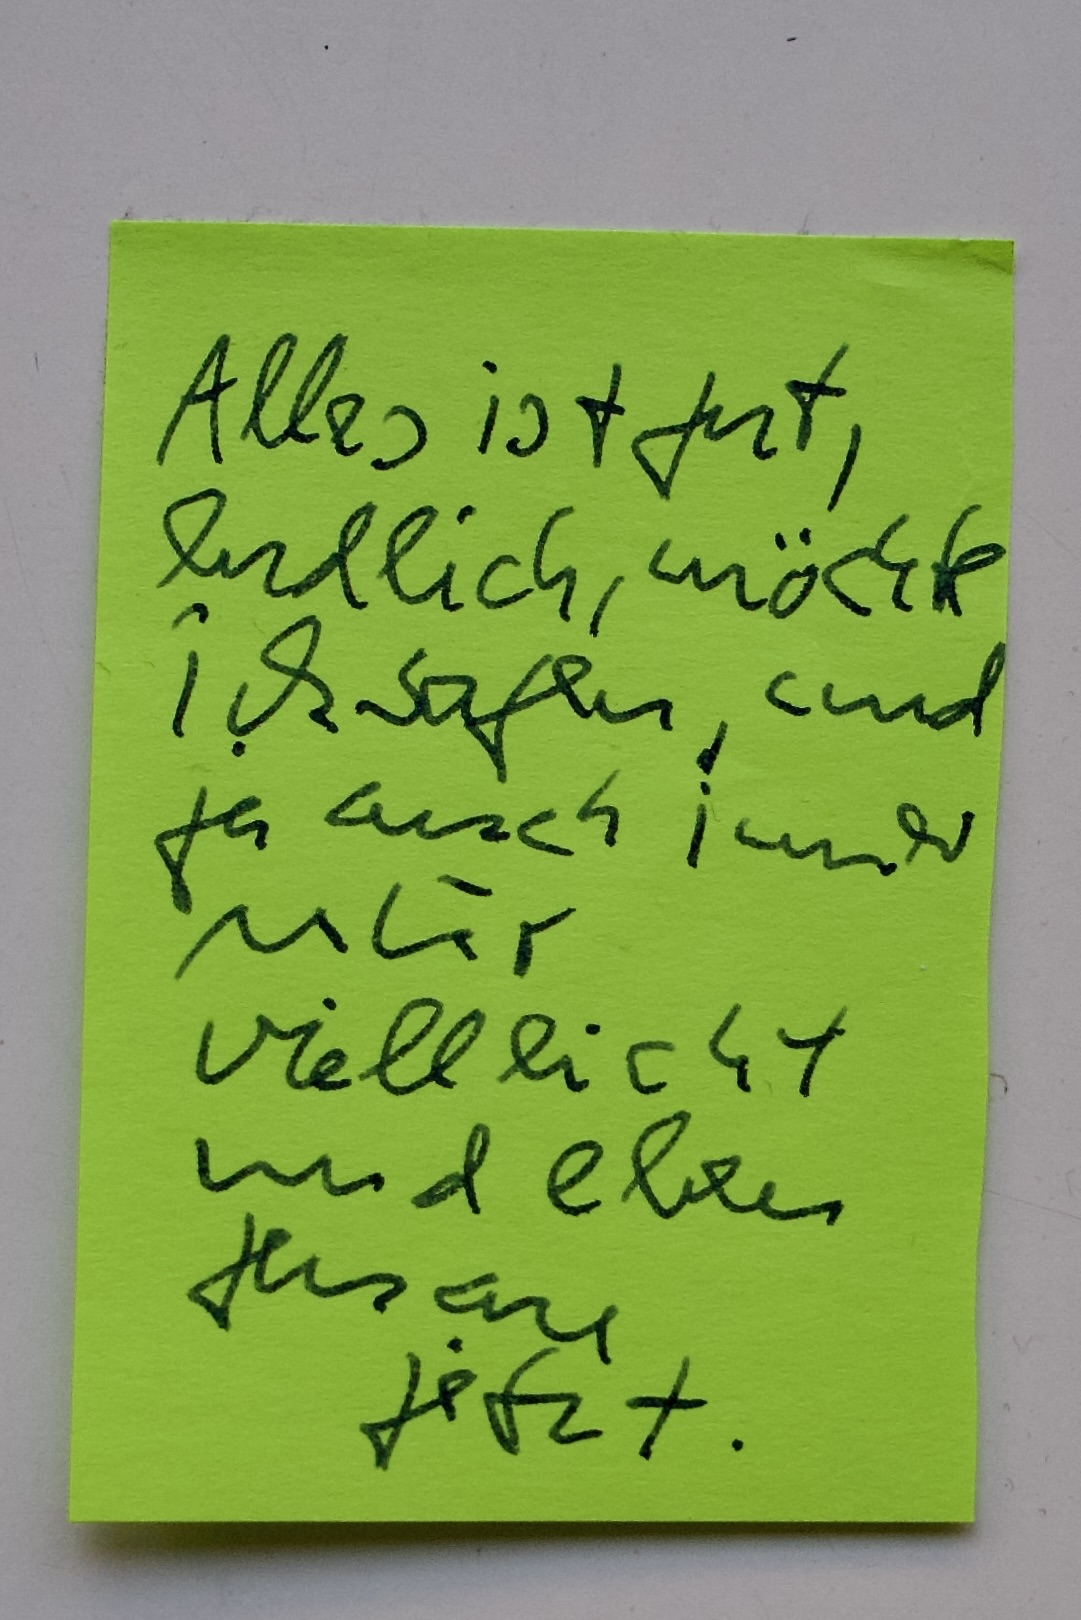 Alles ist gut,
endlich, möchte
ich sagen, und
ja auch immer
nur
vielleicht
und eben
genau
jetzt.